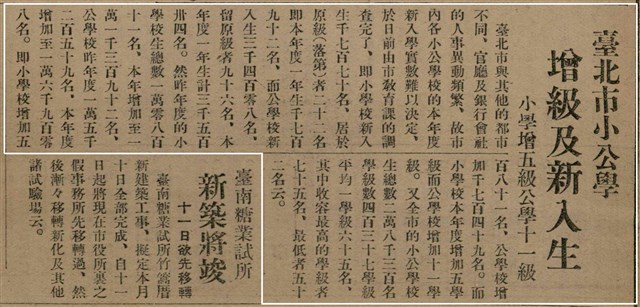 臺北市小公學
增級及新入生
小學增五級公學十一級
臺北市與其他的都市
不同、官廳及銀行會社
的人事異動頻繁、故市
內各小公學校的本年度
新入學實數難以決定、
於日前由市敎育課的調
查完了、即小學校新入
生千七百七十名、居於
原級(落第)者二十二名
即本年度一年生千七百
九十二名、面公學校新
入生三千四百零八名、
留原級者九十六名、本
年度一年生計三千五百
卅四名。然昨年度的小
學校生總數一萬零八百
十一名、本年增加至一
萬一千三百九十二名、
公學校昨年度一萬五千
二百五十九名、本年度
增加至一萬六千九百零
八名。即小學校增加五
百八十一名、公學校增
加千七百四十九名。而
小學校本年度增加五學
級而公學校增加十一學
級。又全市的小公學校
生總數二萬八千三百名
學級數四百三十七學級
平均一學級六十五名、
其中收容最高的學級者
七十五名、最低者五十
二名云。
臺南糖業試所
新築將竣
十一日欲先移轉
臺南糖業試所竹篙厝
新建築工事、擬定本月
十日全部完成、自十一
日起將現在市役所裏之
假事務所先移轉過、然
後漸々移轉新化及其他
諸試驗場云。